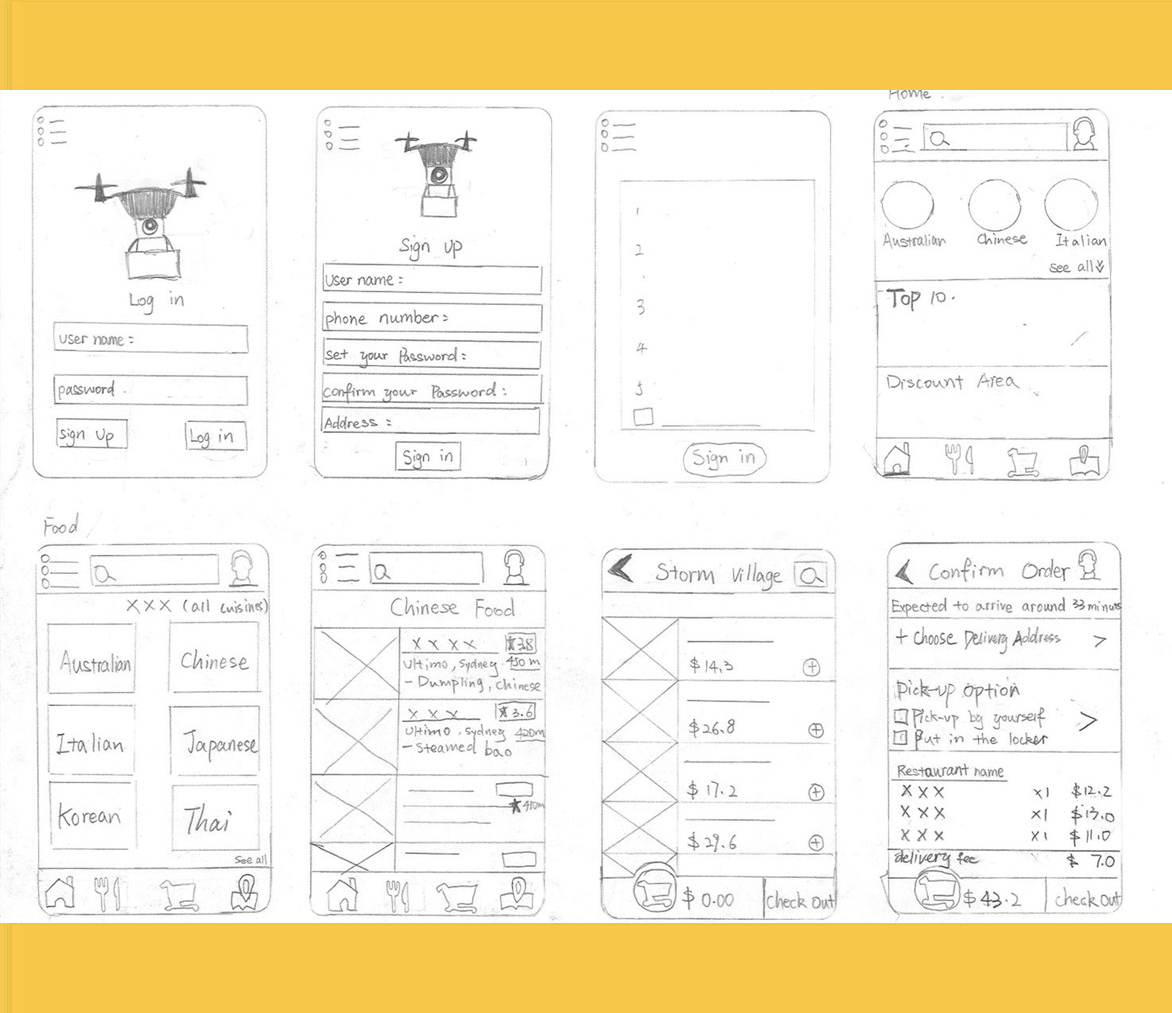 Log in
user name :
password
sign Up
Log in
Sign Up
User name :
phone number :
set your Password :
confirm your Password :
Address :
Sign in
1
2
3
4
5
Sign in
Home
Australian
Chinese
Italian
see all
Top 10.
Discount Area
Food
X X X (all cuisines)
Australian
Chinese
Italian
Japanese
Korean
Thai
See all
Chinese Food
X X X X
3.8
Ultimo, Sydney 450m
- Dumpling, Chinese
X X X
3.6
Ultimo, Sydney 420m
- Steamed bao
Storm Village
$14.3
$26.8
$17.2
$29.6
$0.00
check Out
Confirm Order
Expected to arrive around 33 minuts
+ Choose Delivery Address >
Pick-up Option
Pick-up by yourself >
Put in the locker
Restaurant name
X X X X1 $12.2
X X X X1 $13.0
X X X X1 $11.0
delivery fee $ 7.0
$43.2
check Out